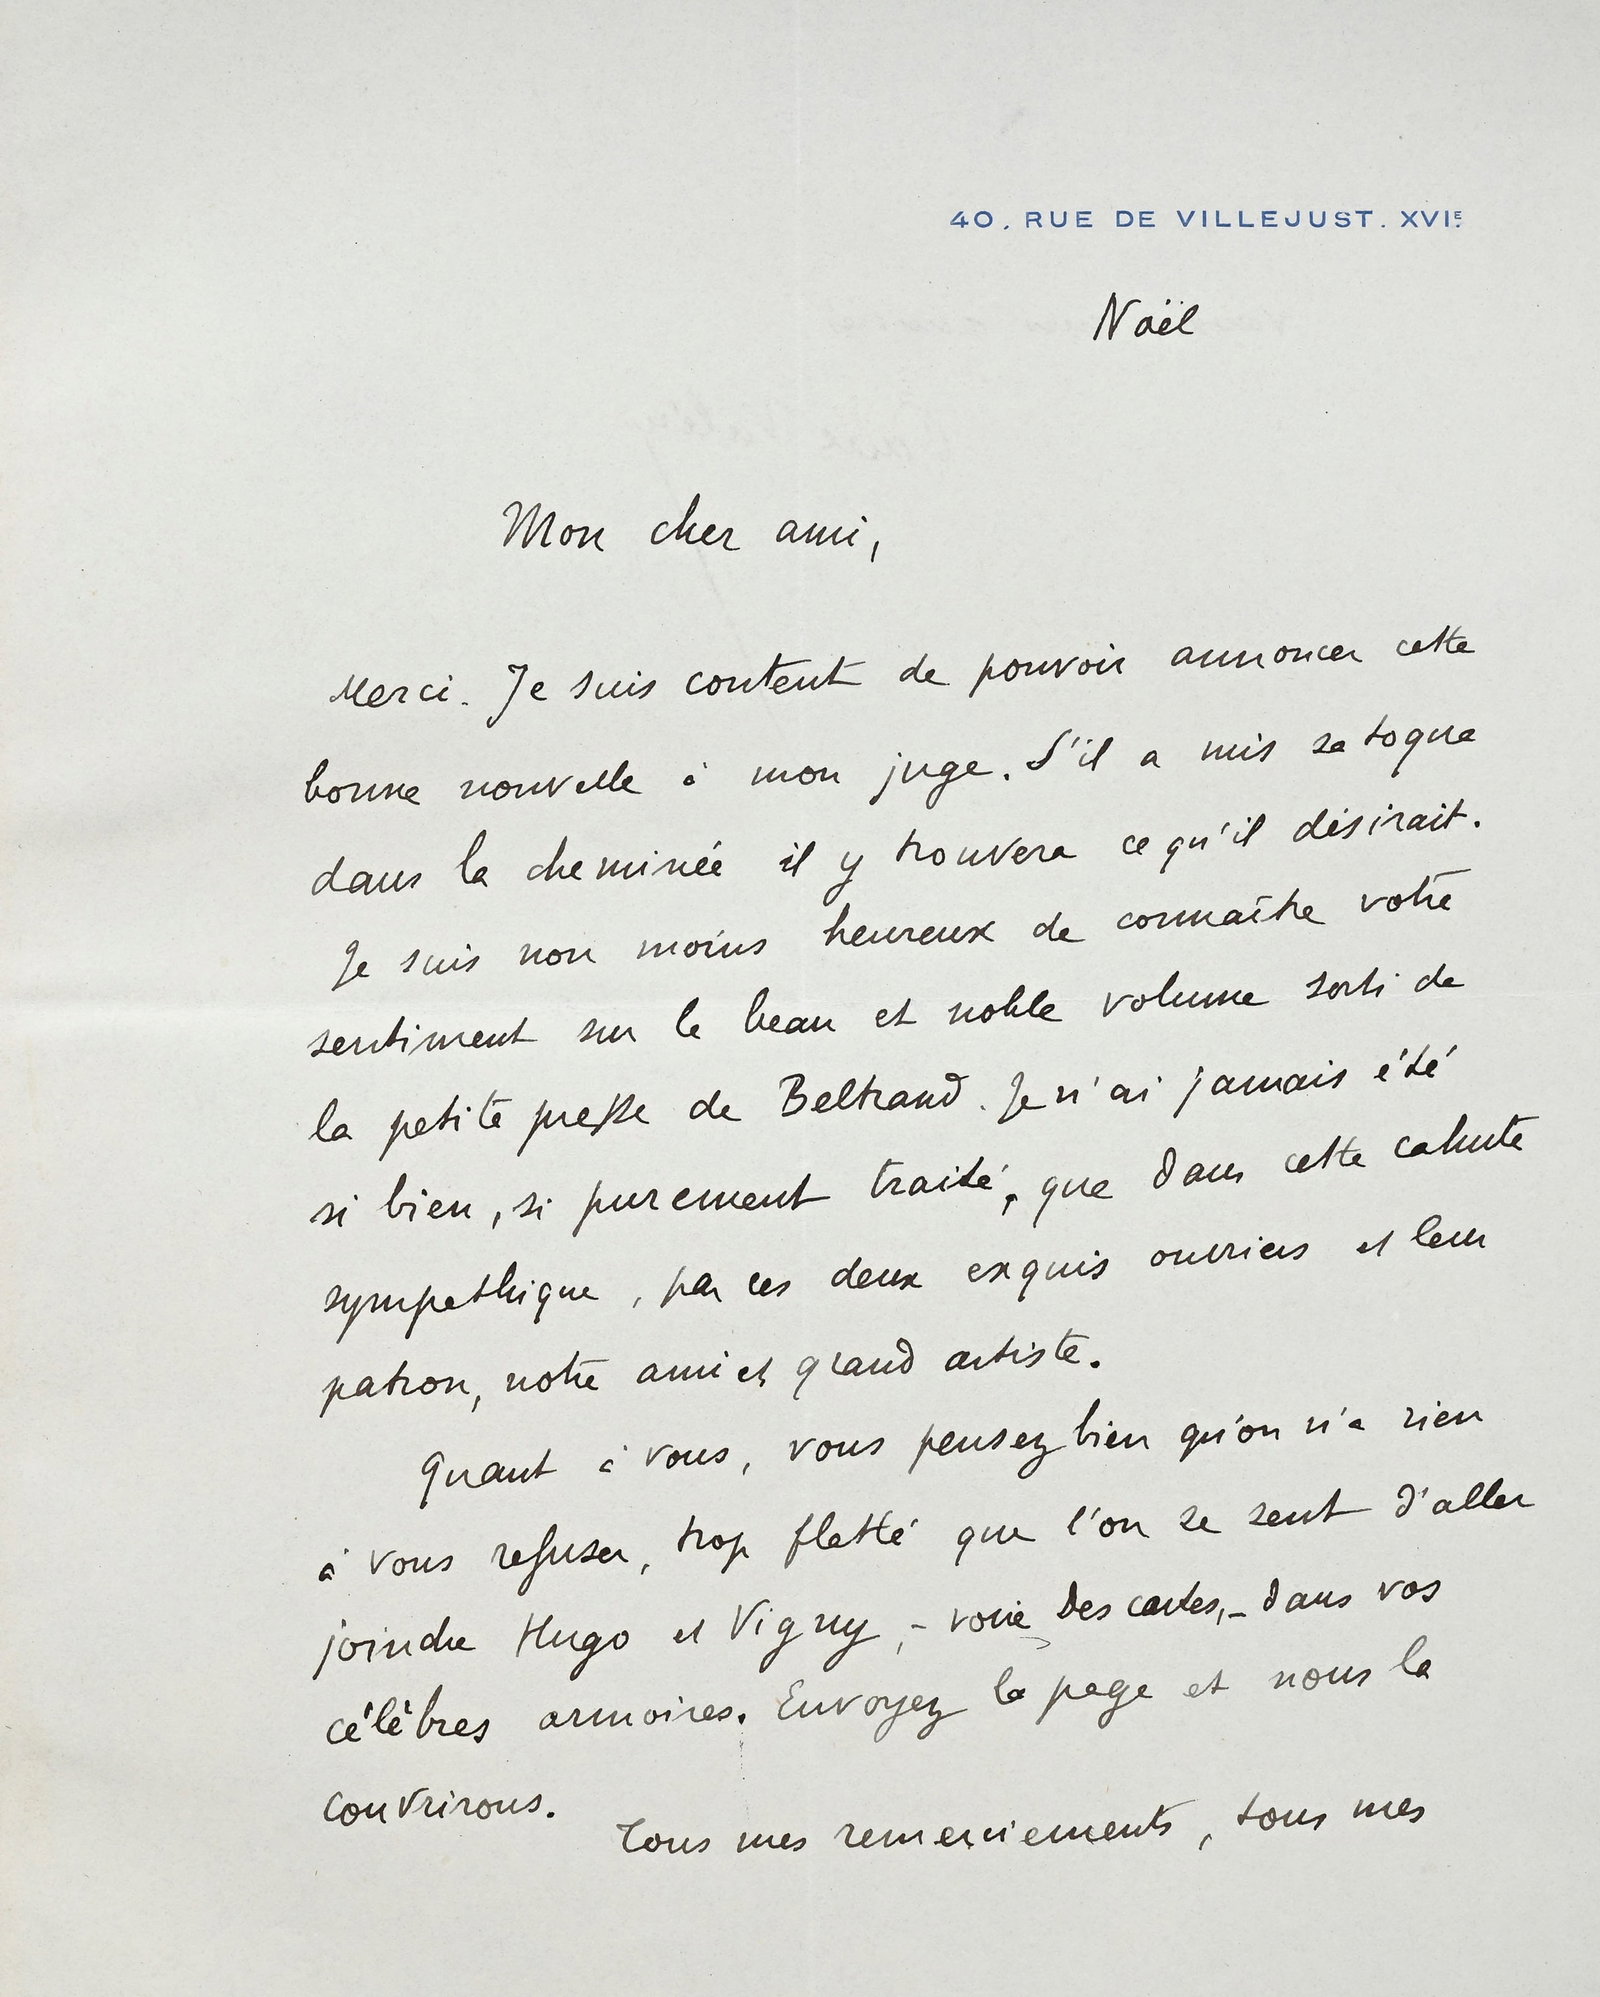 40, RUE DE VILLEJUST. XVIE
Noël
Mon cher ami,
Merci. Je suis content de pouvoir annoncer cette
bonne nouvelle à mon juge. S'il a mis sa toque
dans la cheminée il y trouvera ce qu'il désirait.
Je suis non moins heureux de connaître votre
sentiment sur le beau et noble volume sorti de
la petite presse de Beltrand. Je n'ai jamais été
si bien, si purement traité, que dans cette cahute
sympathique, par ces deux exquis ouvriers et leur
patron, notre ami et grand artiste.
Quant à vous, vous pensez bien qu'on n'a rien
à vous refuser, trop flatté que l'on se sent d'aller
joindre Hugo et Vigny, - voire Descartes, - dans vos
célèbres armoires. Envoyez la page et nous la
couvrirons.
Tous mes remerciements, tous mes